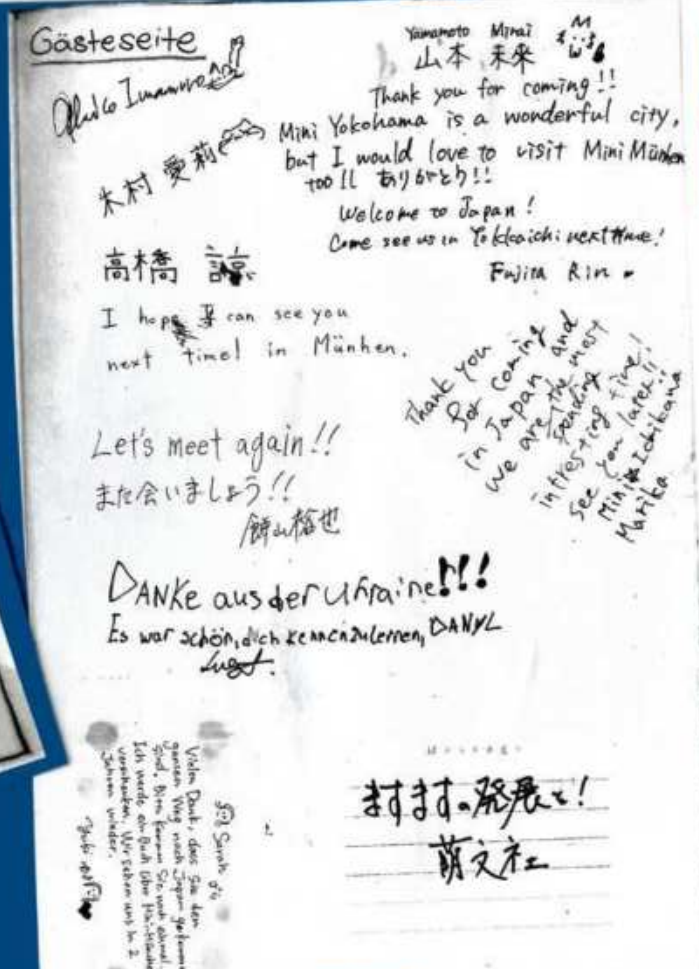 Gästeseite
Yamamoto Mirai
山本 未来
Imamura
Thank you for coming!!
Mini Yokohama is a wonderful city,
but I would love to visit Mini München
too!! ありがとう!!
木村 愛莉
Welcome to Japan!
Come see us in Yokkaichi next time!
Fujita Rin
高橋 諒
I hope I can see you
next time! in Münhen.
Thank you
for coming
in Japan and
we are the most
spending
intresting time!
See you later!!
Mini Ichikawa
Marika
Let's meet again!!
また会いましょう!!
餅山 裕也
DANKE aus der Ukraine!!!
Es war schön, dich kennenzulernen, DANYL
Sarah
Vielen Dank, dass Sie den
ganzen Weg nach Japan gekommen
sind. Bitte kommen Sie noch einmal.
Ich werde ein Buch über
Wir sehen uns in 2
Jahren wieder.
Yuki
ますますの発展を!
萌文社